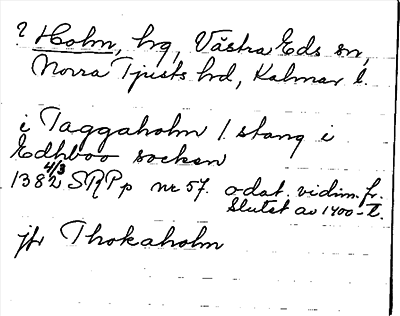 ? Holm, hg, Västra Eds sn,
Norra Tjusts hd, Kalmar l.
i Taggaholm 1 stang i
Edhboo socken
4/3
1382 SRPp nr 57. odat. vidim. fr.
slutet av 1400-t.
jfr Thokaholm